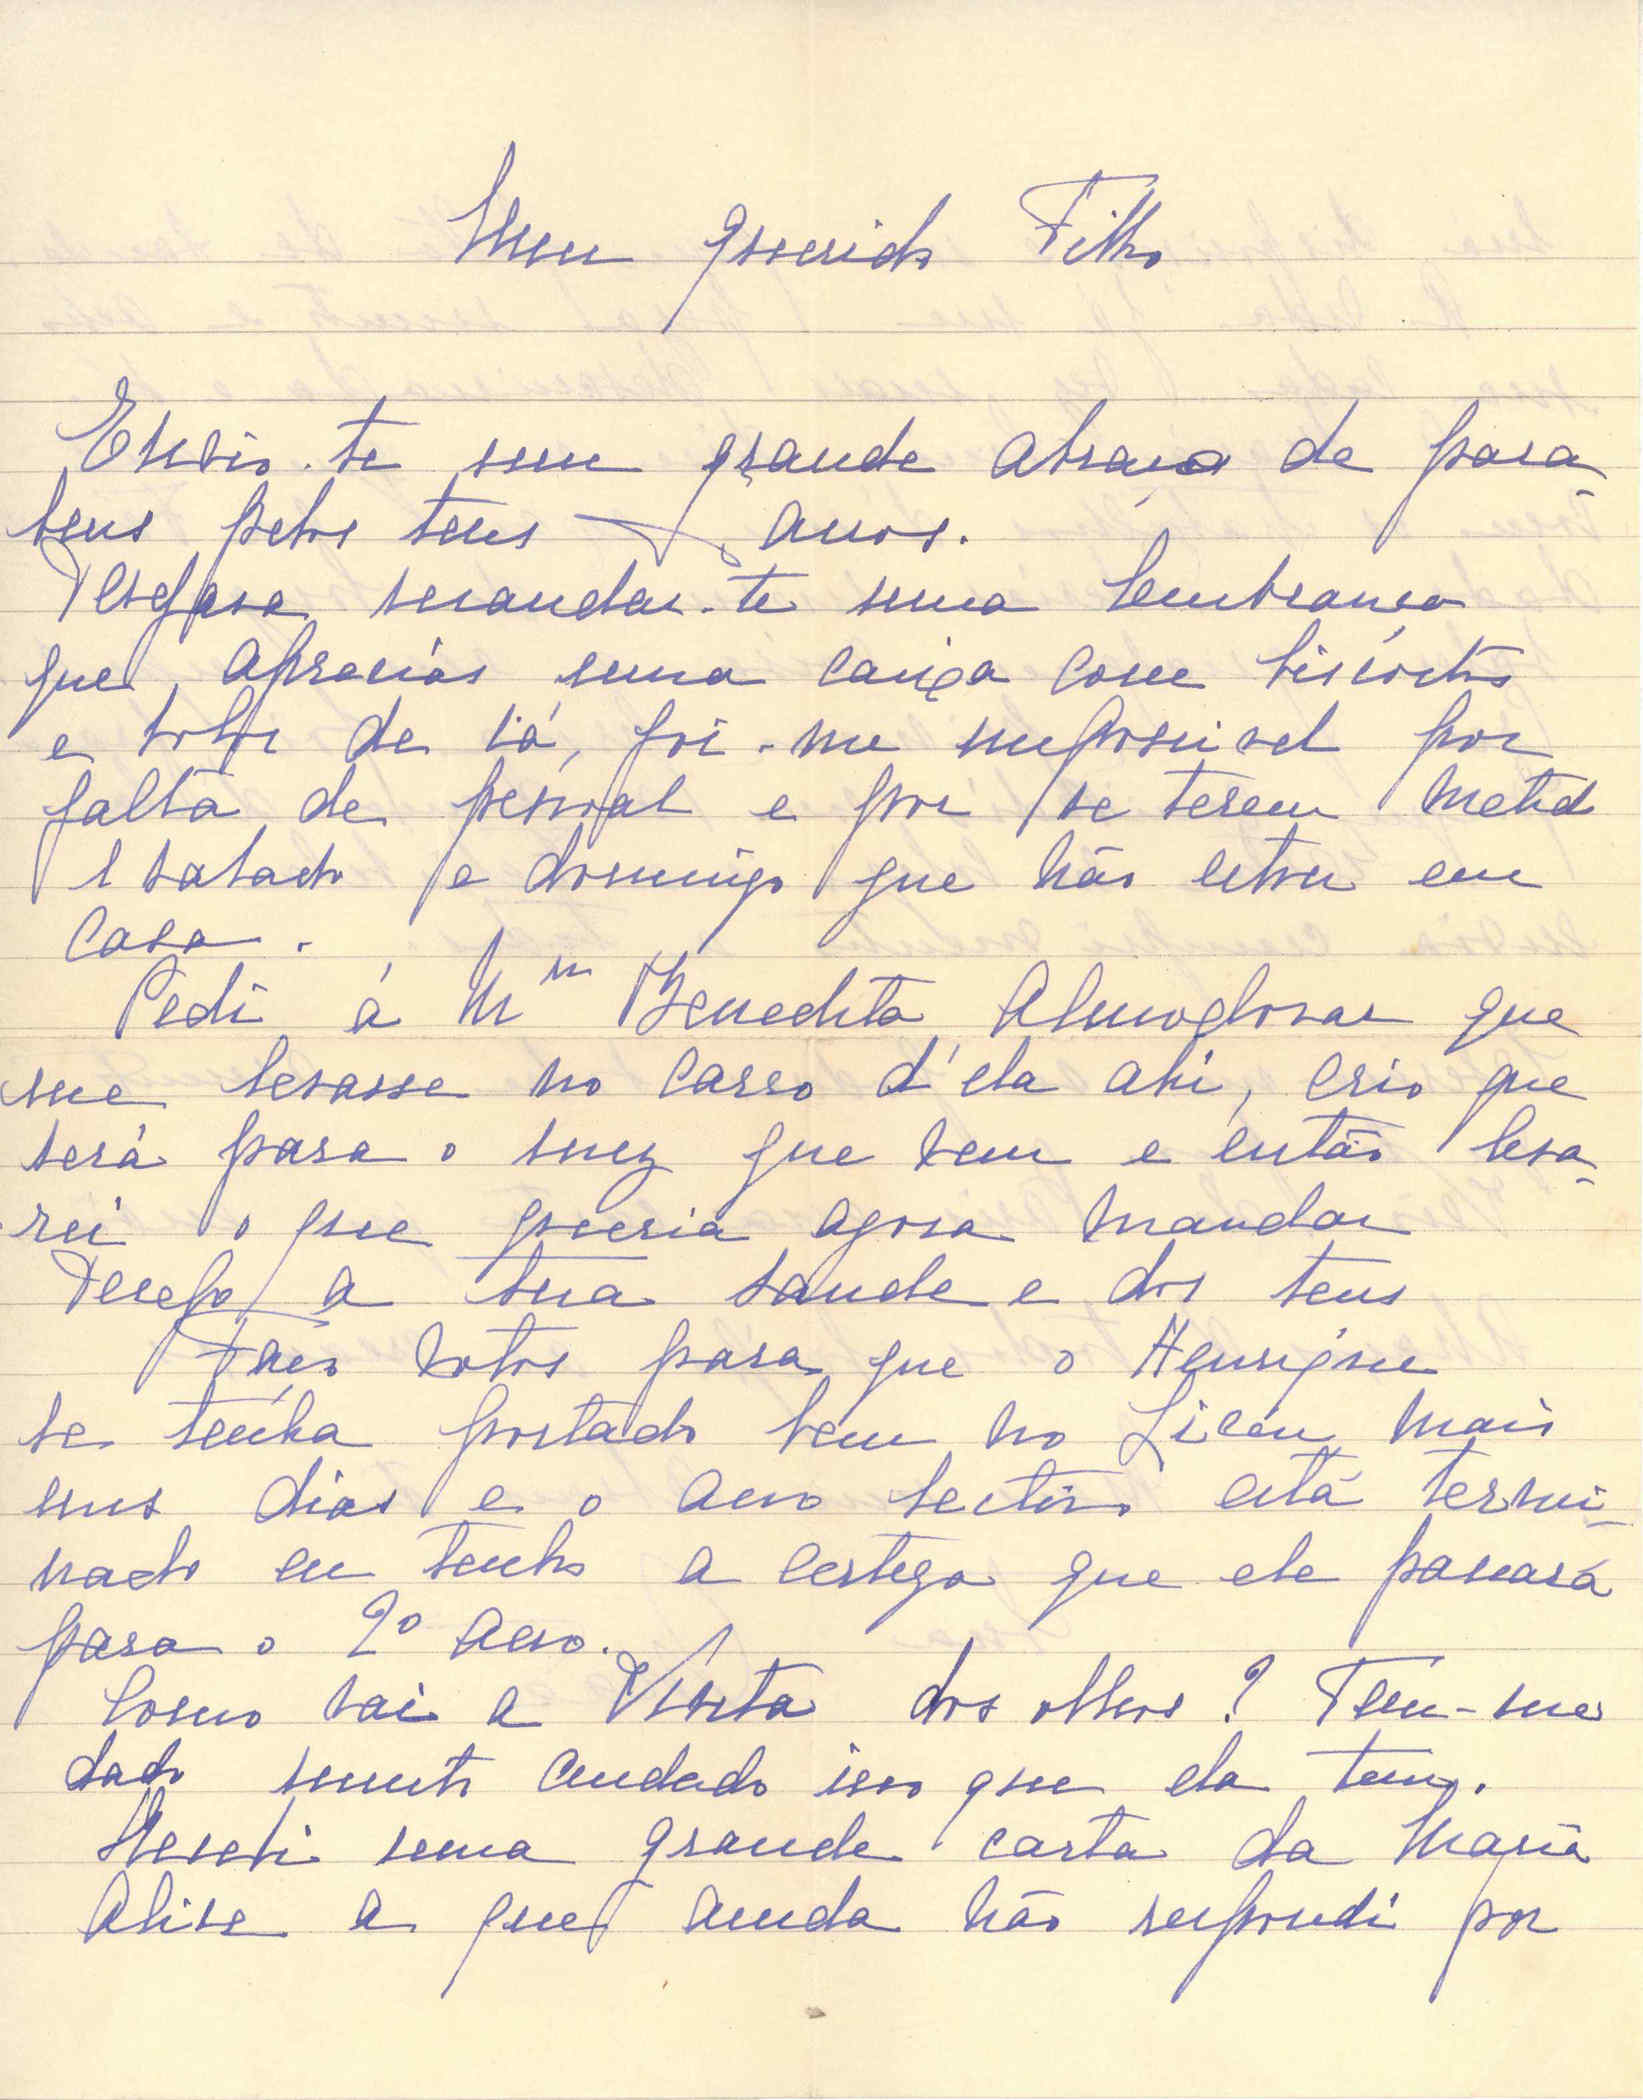 Meu querido Filho
Envio-te um grande abraço de para-
bens pelos teus anos.
Desejava mandar-te uma lembrança
que aprecias uma caixa com biscoitos
e bolos de cá, foi-me impossivel por
falta de pessoal e por se terem metid
sabado e domingo que não estou em
casa.
Pedi á M.me Benedita Almodovar que
me levasse no carro d'ela ahi, crio que
será para o mez que vem e então leva-
rei o que queria agora mandar
Desejo a tua saude e dos teus
Faço votos para que o Henrique
se tenha portado bem no Liceu mais
uns dias e o ano lectivo está termi-
nado eu tenho a certeza que ele passará
para o 2º ano.
Como vai a dos olhos? Tem-me
dado muito cuidado isso que ela tem.
Recebi uma grande carta da Maria
Alice a que ainda não respondi por